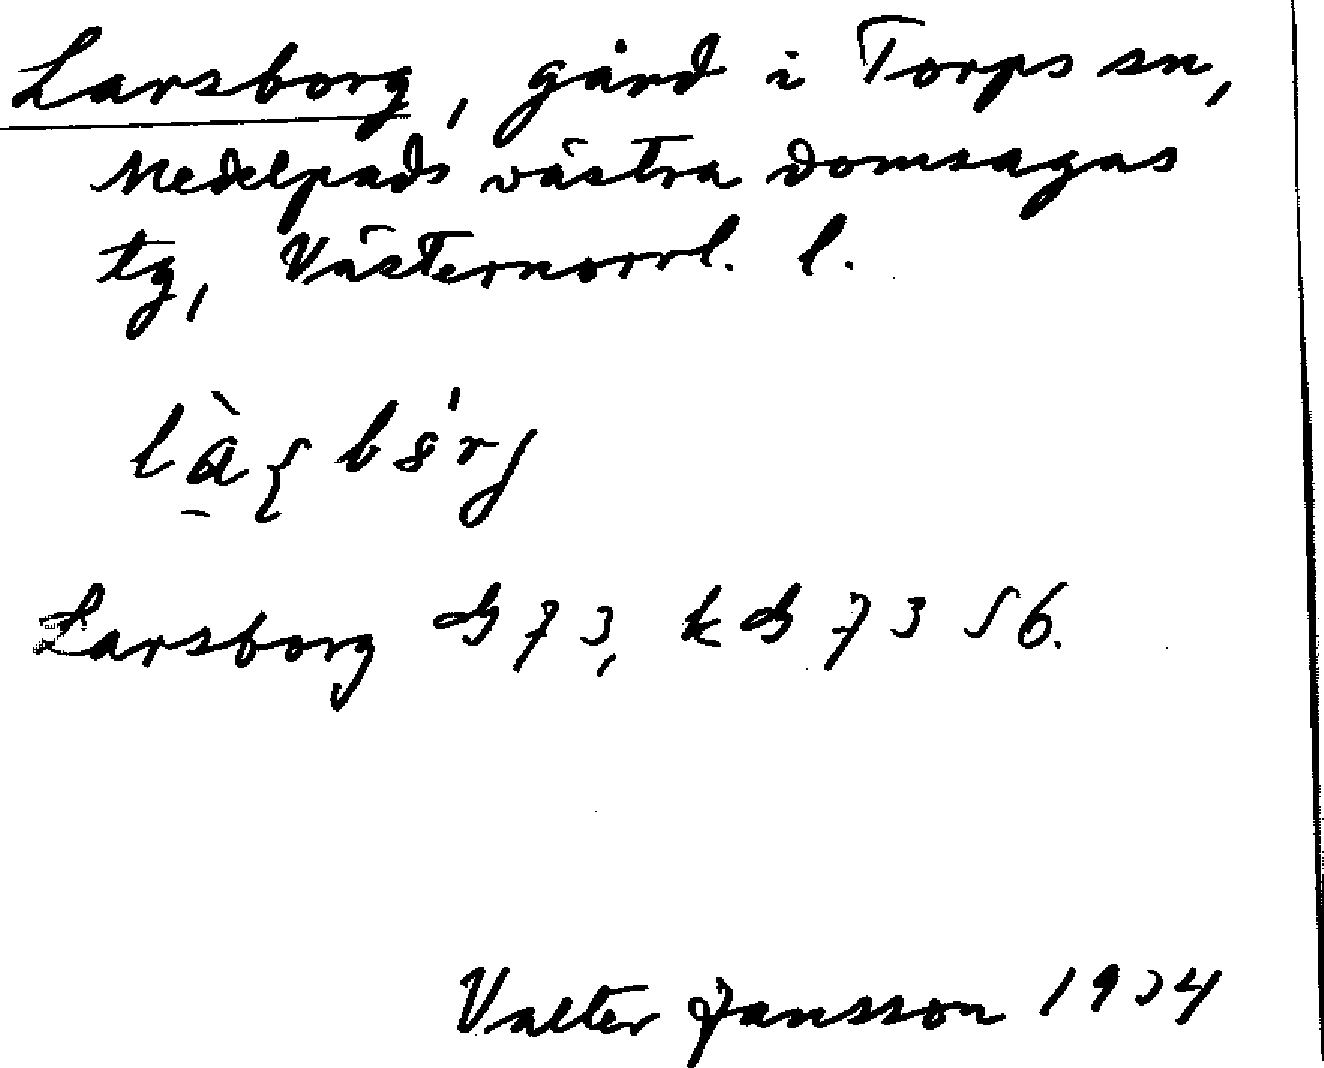 Larsborg, gård i Torps sn,
Medelpads västra domsagas
tg, Västernorrl. l.
Larsborg
Valter Jansson 1934